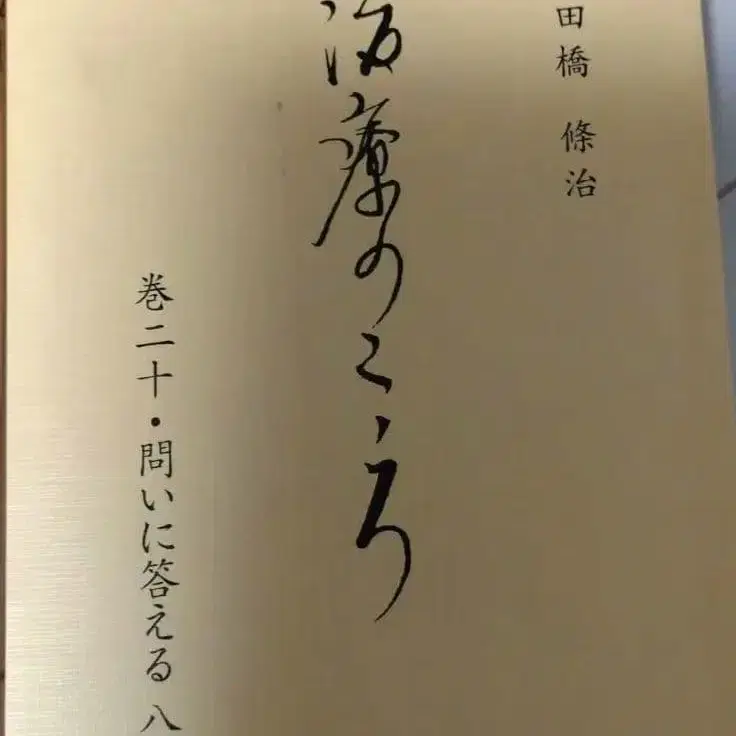 田橋 條治
治療のこゝろ
巻二十・問いに答える 八